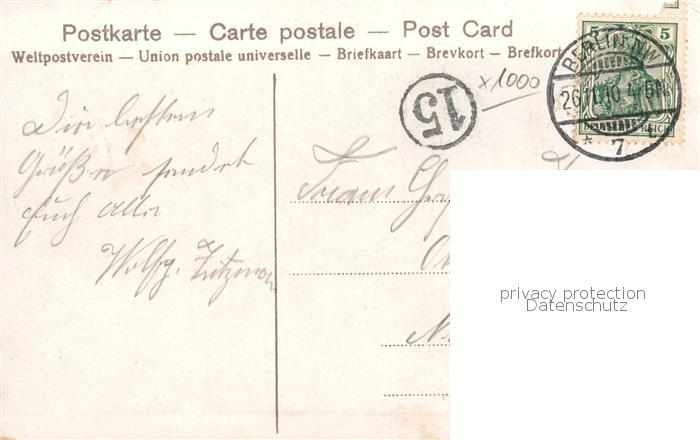 Postkarte — Carte postale — Post Card
Weltpostverein — Union postale universelle — Briefkaart — Brevkort — Brefkort
5 5
BERLIN NW
26.11.10.4-5N.
* 7
REICH
15
x1000
Die besten
Grüße sendet
Euch Allen
Wolfg.
Frau
privacy protection
Datenschutz